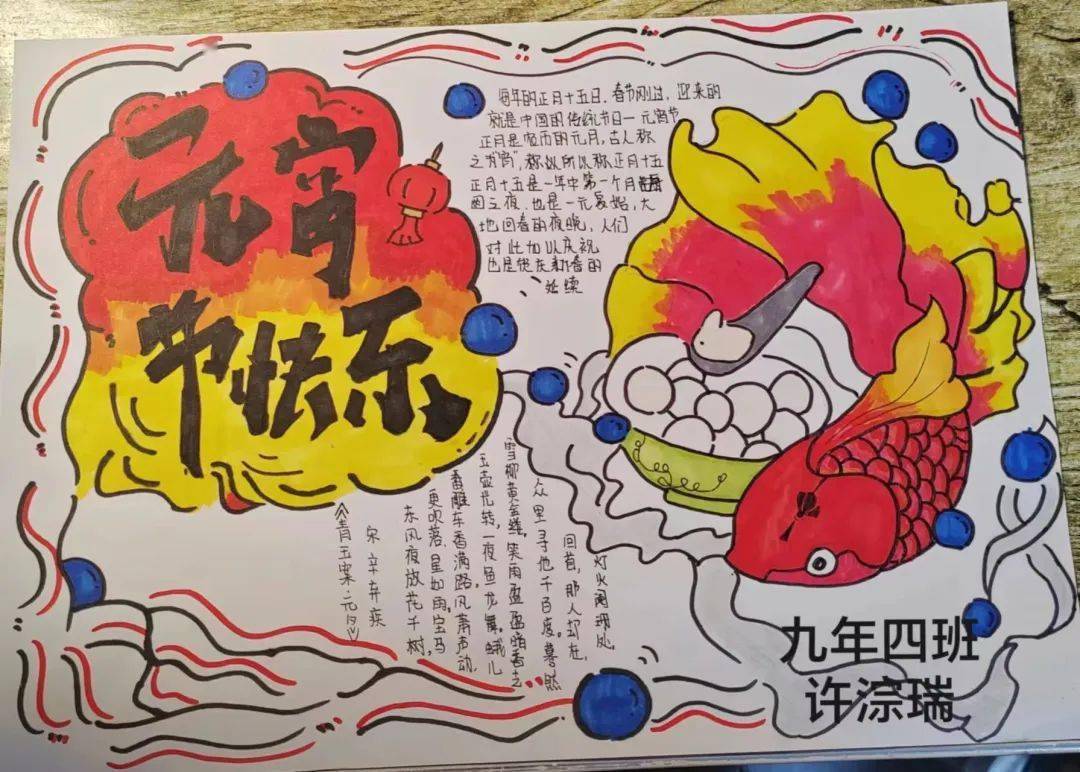 元宵
节快乐
每年的正月十五日,春节刚过,迎来的
就是中国的传统节日一元宵节
正月是的元月,古人称
之"宵",称以所以称正月十五
正月十五是一年中第一个月
圆之夜.也是一元复始,大
地回春的夜晚,人们
对此加以庆祝
也是新春的
延续
《青玉案·元夕》
宋 辛弃疾
东风夜放花千树,
更吹落,星如雨,宝马
雕车香满路.风萧声动,
玉壶光转,一夜鱼龙舞.蛾儿
雪柳黄金缕,笑雨盈盈暗香去
众里寻他千百度.蓦然
回首,那人却在,
灯火阑珊处
九年四班
许淙瑞